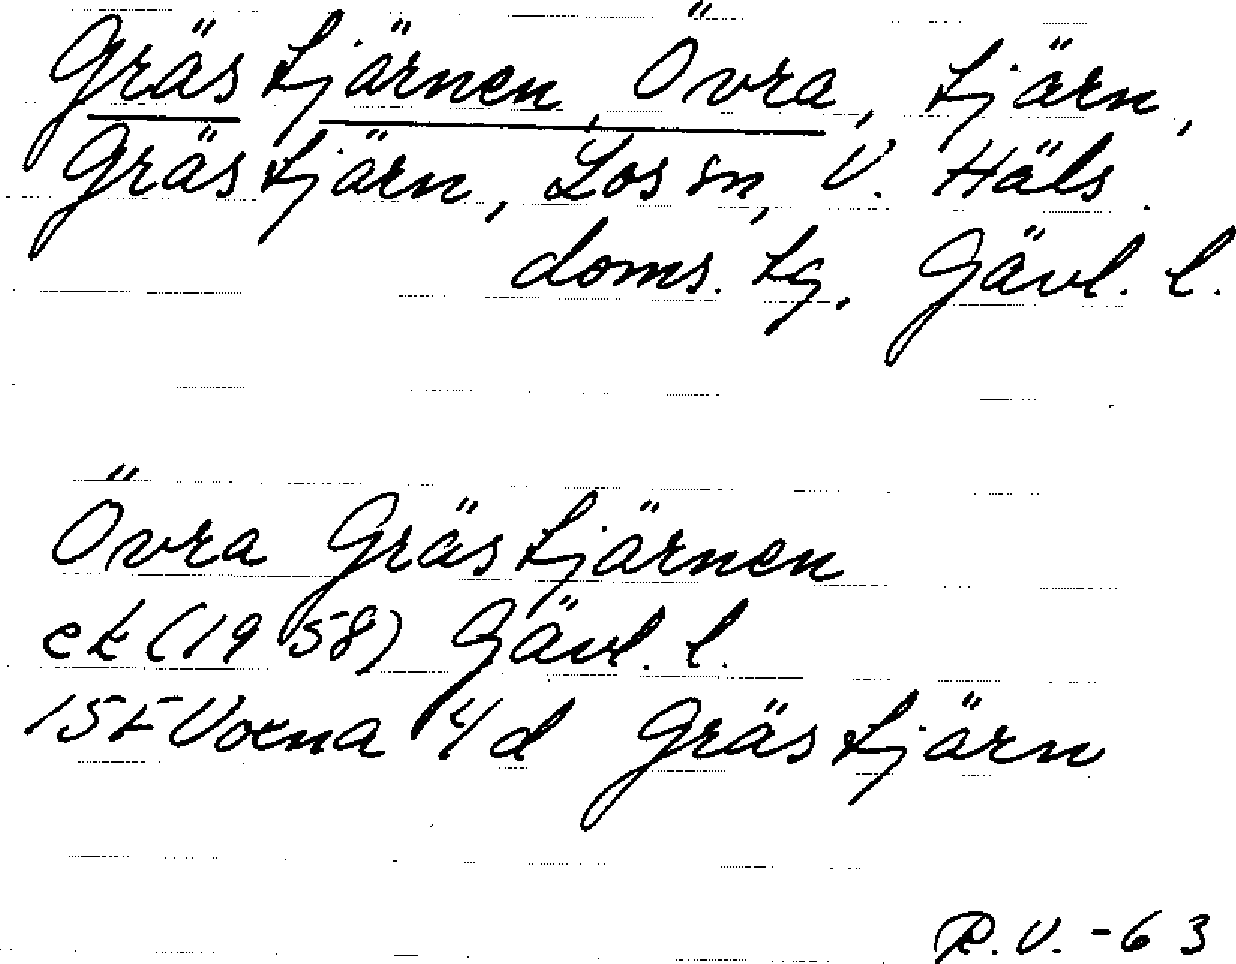 Grästjärnen, Övra, tjärn,
Grästjärn, Los sn, V. Häls.
doms. tg, Gävl. l.
Övra Grästjärnen
ek (1958) Gävl. l.
15E Voxna 4/d Grästjärn
R.V. -63